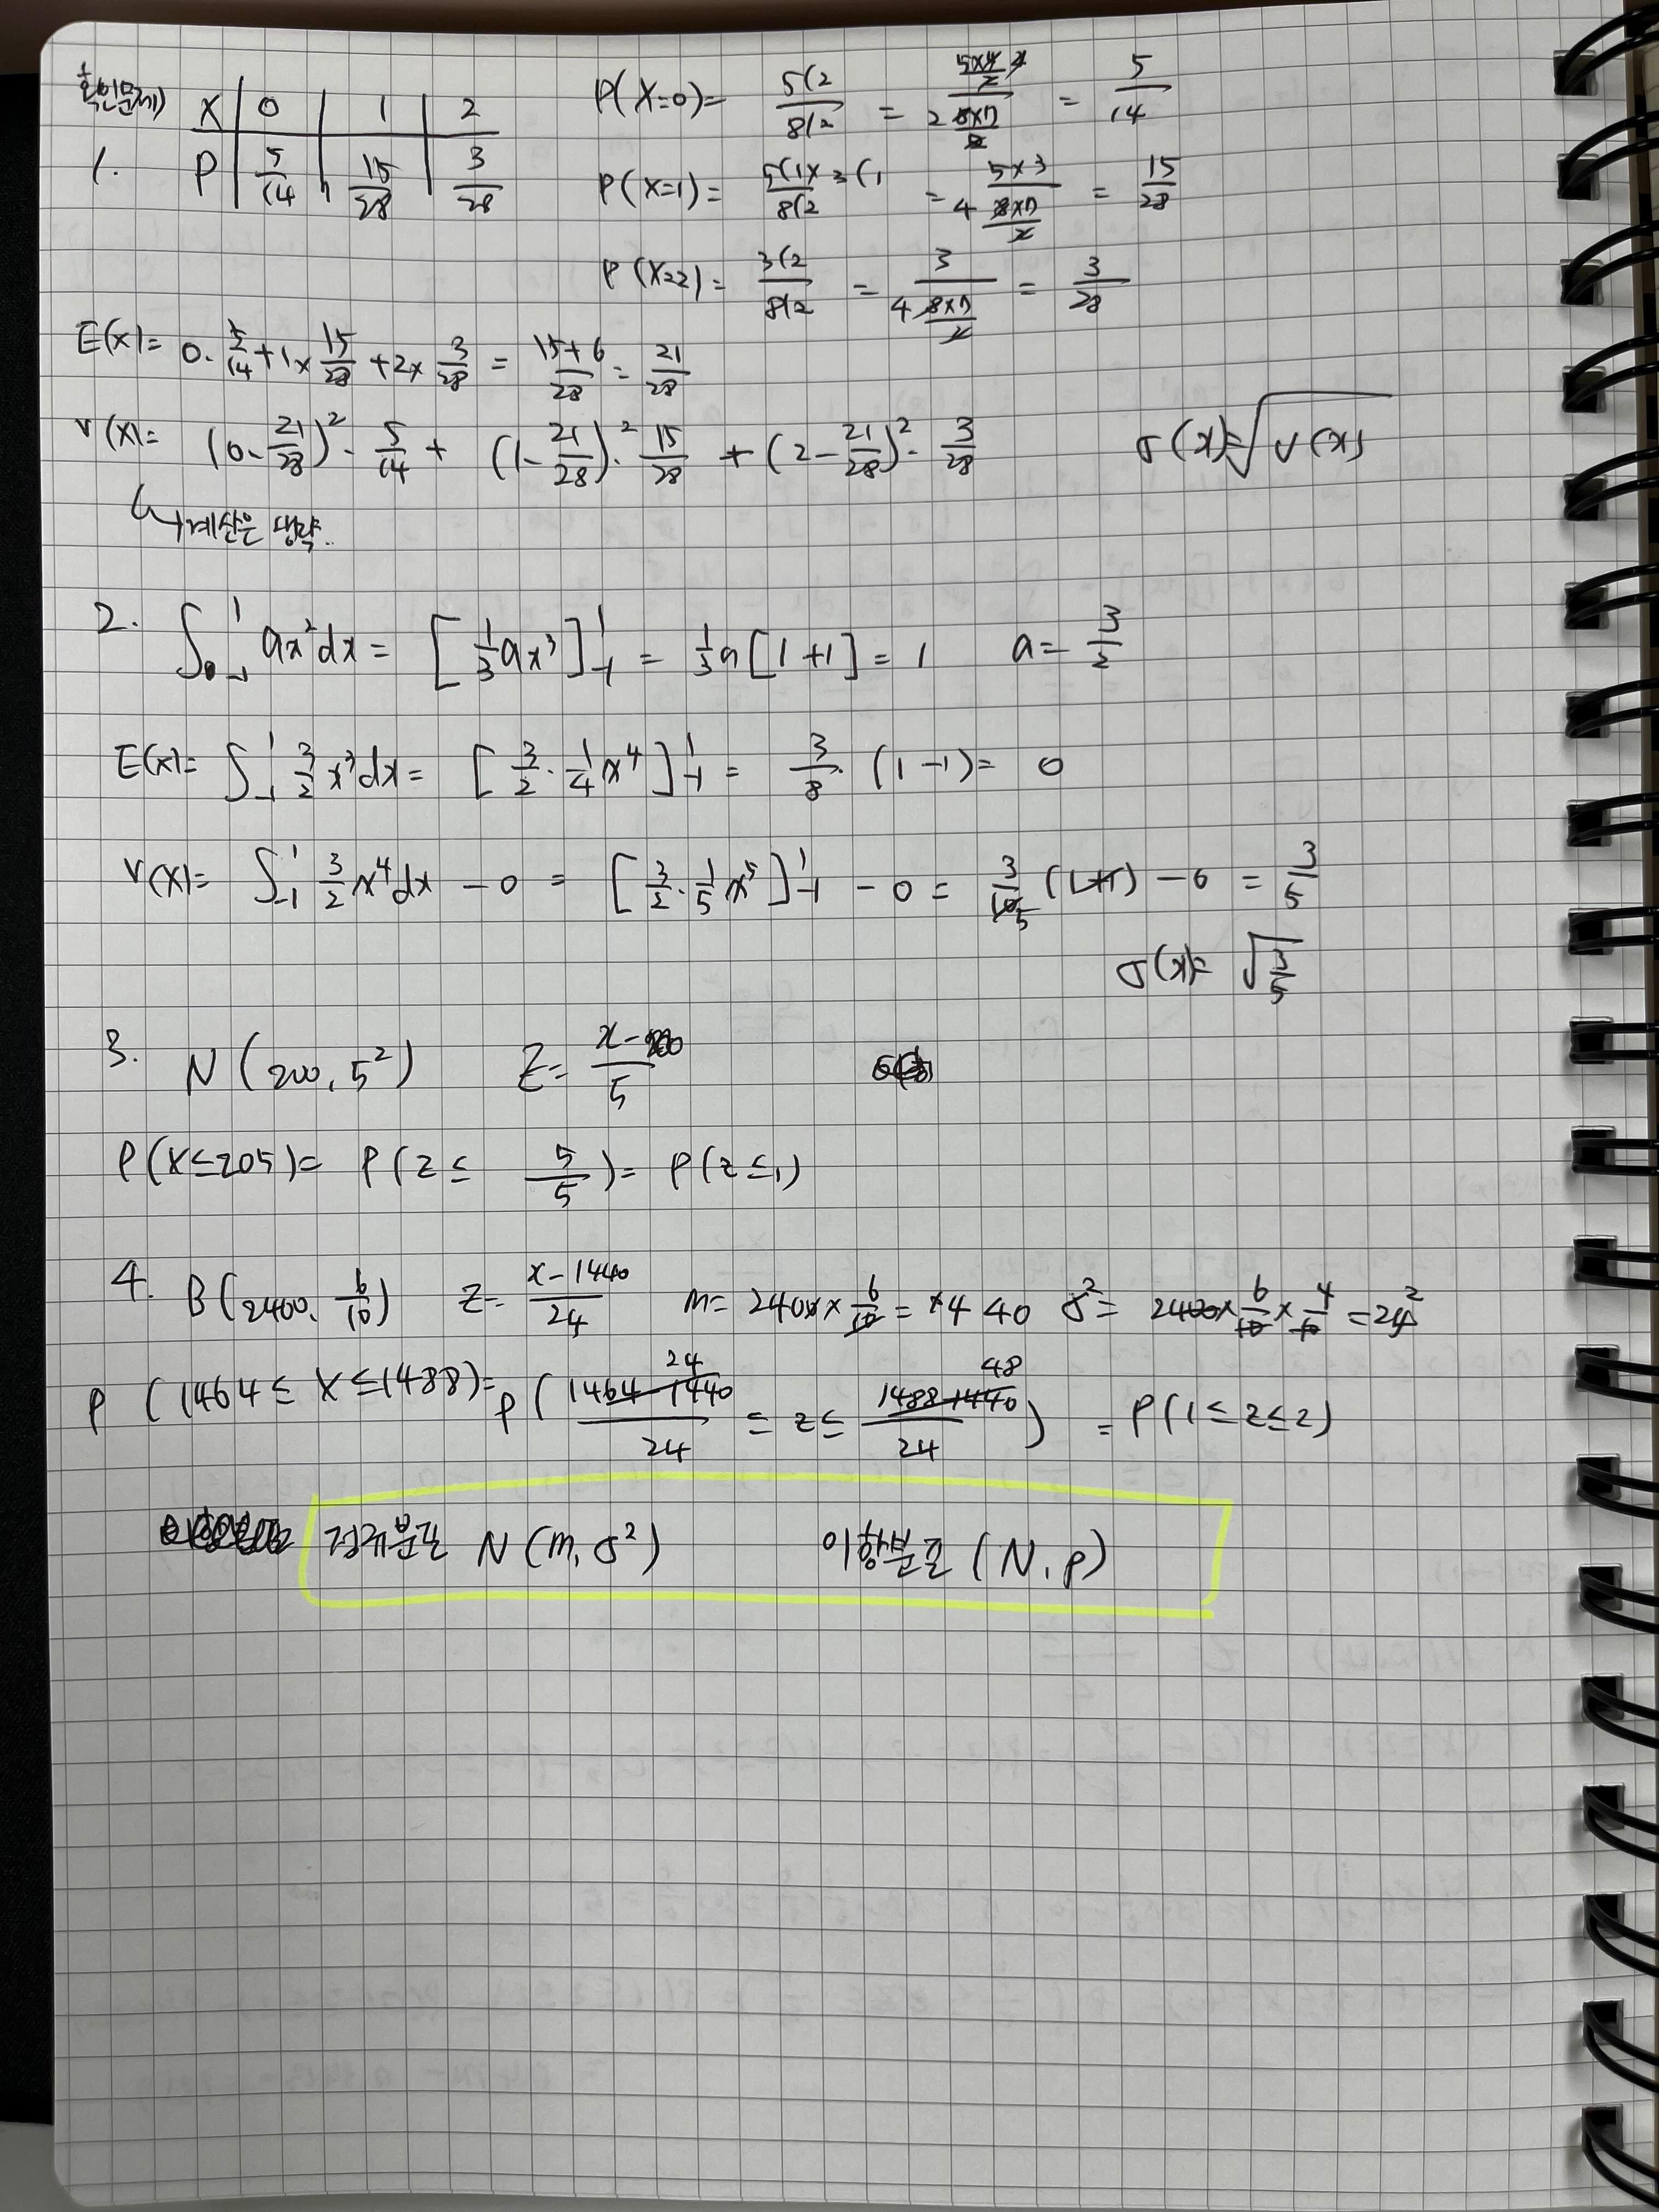 확인문제)
X | 0 | 1 | 2
1. P | 5/14 | 15/28 | 3/28
P(X=0) = 5C2/8C2 = (5×4/2)/(8×7/2) = 5/14
P(X=1) = 5C1×3C1/8C2 = 5×3/(8×7/2) = 15/28
P(X=2) = 3C2/8C2 = 3/(8×7/2) = 3/28
E(X)= 0·5/14 + 1×15/28 + 2×3/28 = (15+6)/28 = 21/28
V(X)= (0-21/28)²·5/14 + (1-21/28)²·15/28 + (2-21/28)²·3/28 σ(X)=√V(X)
↳계산은 생략..
2. ∫₋₁¹ ax²dx = [1/3 ax³]₋₁¹ = 1/3 a[1+1] = 1 a = 3/2
E(X)= ∫₋₁¹ 3/2 x³dx = [3/2·1/4 x⁴]₋₁¹ = 3/8·(1-1) = 0
V(X)= ∫₋₁¹ 3/2 x⁴dx - 0 = [3/2·1/5 x⁵]₋₁¹ - 0 = 3/10 5 (1+1) - 0 = 3/5
σ(X)= √3/5
3. N(200, 5²) Z= (x-200)/5
P(X≤205)= P(Z≤ 5/5)= P(Z≤1)
4. B(2400, 6/10) Z= (x-1440)/24 m= 2400×6/10 = 1440 σ²= 2400×6/10×4/10 = 24²
P(1464≤X≤1488)= P((1464-1440)/24 ≤ Z ≤ (1488-1440)/24) = P(1≤Z≤2)
24 48
정규분포 N(m, σ²) 이항분포 (N, p)